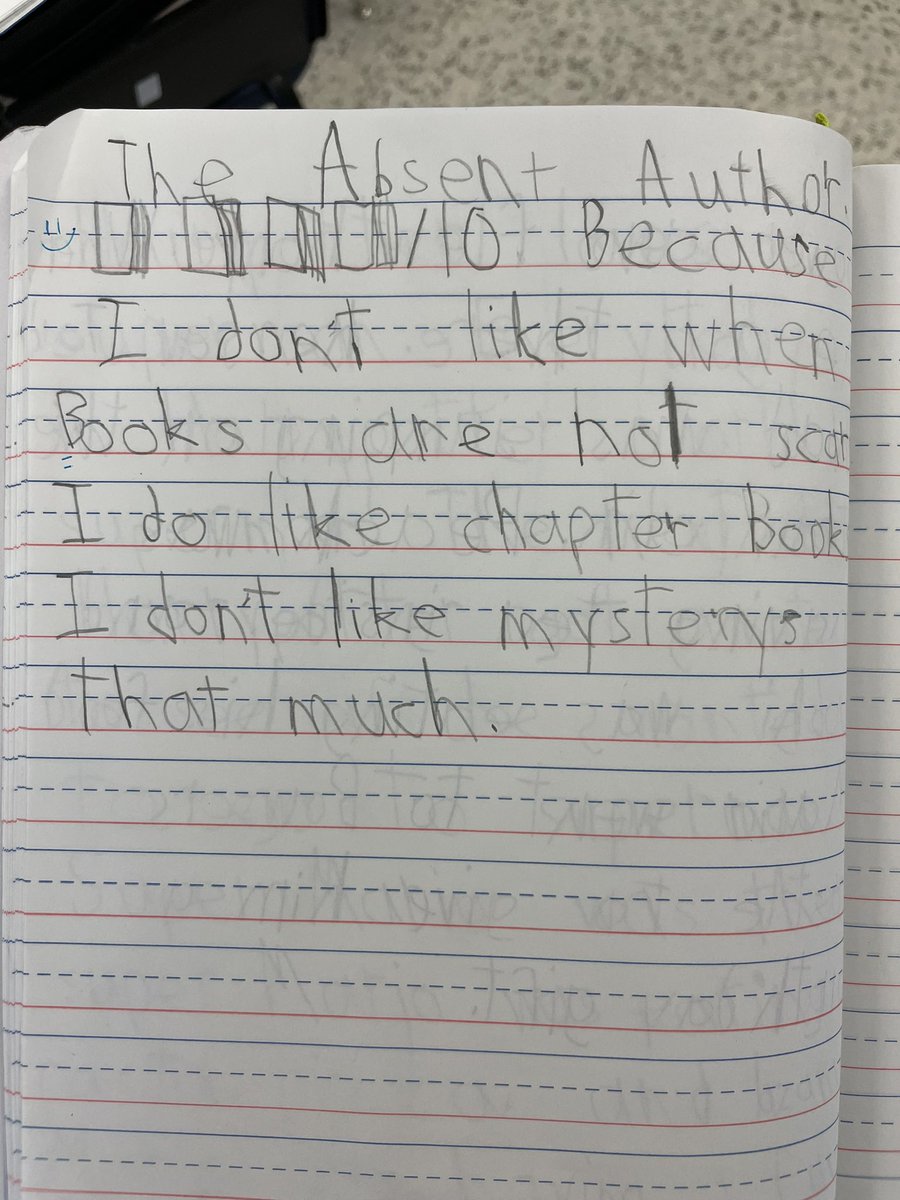 The Absent Author.
/10 Because
I don't like when
Books are not scar
I do like chapter Book
I don't like mysterys
that much.